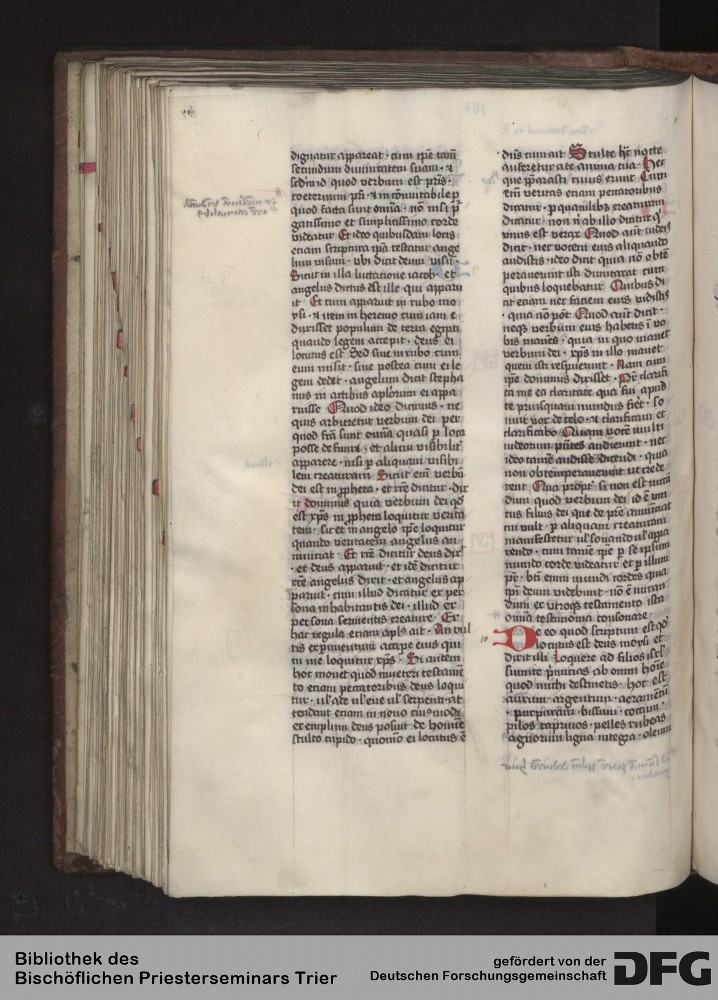 dignatur appareat · cum ipse tam̄
secundum diuinitatem suam · ⁊
scdm id quod verbum est pr̄is ·
coeternum pr̄i · ⁊ incōmutabile p
quod facta sunt om̄ia · nō nisi p
gatissimo et simplicissimo corde
videatur Et ideo quibusdam locis
etiam scriptura ip̄a testatur ange
lum visum · vbi dicit deum visū ·
Sicut in illa luctatione iacob · et
angelus dictus est ille qui apparu
it · Et cum apparuit in rubo mo
ysi · ⁊ item in heremo cum iam e
duxisset populum de terra egipti
quando legem accepit · deus ei
locutus est Sed siue in rubo cum
eum misit · siue postea cum ei le
gem dedit · angelum dicit stepha
nus in actibus apl̄orum ei appa
ruisse Quod ideo dicimus · ne
quis arbitretur verbum dei per
quod fc̄a sunt om̄ia quasi p loca
posse diffiniri · et alicui visibilit̄
apparere · nisi p aliquam visibi
lem creaturam Sicut enī verbū
dei est in ꝓpheta · et rc̄e dicitur · dix
it dominus quia verbum dei qd̄
est xp̄s in ꝓpheta loquitur verita
tem · sic et in angelo ip̄e loquitur
quando veritatem angelus an
nunciat · Et rc̄e dicitur deus dix̄
· et deus apparuit · et idē dicitur
rc̄e angelus dixit · et angelus ap
paruit · cum illud dicatur ex per
sona inhabitantis dei · illud ex
persona seruientis creature · Ex
hac regula etiam apl̄s ait · An vul
tis experimentum accipe eius qui
in me loquitur xp̄s · Si autem
hoc mouet quod in veteri testamē
to etiam peccatoribus deus loqui
tur · ul̓ ade ul̓ eue ul̓ serpenti · at
tendant etiam in nouo cuiusmodi
exemplum deus posuit de homīe
stulto cupido · quomō ei locutus ē
· dn̄s cum ait Stulte hac nocte
auferetur a te anima tua · Hec
que p̄parasti cuius erunt Cum
enī veritas etiam peccatoribus
dicatur · p quamlibet creaturam
dicatur · non n̄ ab illo dicitur q̓
vnus est verax Quod aut̄ iudeis
dicit · nec vocem eius aliquando
audistis · ideo dicit quia nō obtē
perauerunt
quibus loquebatur Quibus di
cit etiam nec faciem eius vidistis
· quia nō pōt Quod aut̄ dicit ·
neq̨ verbum eius habetis ī vo
bis manēs · quia in quo manet
verbum dei · xp̄s in illo manet
quem isti respuerunt · Nam cum
ip̄e dominus dixisset · Pr̄ clarifi
ca me ea claritate qua fui apud
te priusquam mundus fiēt · so
nuit vox de celo · ⁊ clarificaui et
clarificabo Quam vocē multi
iudeorum pn̄tes audierunt · nec
ideo tamē audisse dicēdi · quia
non obtemperauerunt ut crede
rent Qua propt̄ si non est mirā
dum quod verbum dei id ē vni
cus filius dei que de pr̄e
cui vult · p aliquam creaturam
manifestetur ul̓ sonando ul̓ appa
rendo · cum tamē ip̄e p se ip̄sum
mundo corde videatur et p illum
pr̄ · bt̄i enim mundi cordes quia
ip̄i deum videbunt · nō ē miran
dum ex vtroq̨ testamento ista
om̄ia testimonia consonare ·
10 De eo quod scriptum est qd̄
locutus est deus moysi et
dixit illi Loquere ad filios isrl̓
sumite p̄micias ab omni hoīe
quod michi destinetis · hoc est
aurum · argentum · aeramentū
· purpuram · bissum · coccum ·
pilos caprinos · pelles rubeas
agnorum ligna integra · oleum
Bibliothek des
Bischöflichen Priesterseminars Trier
gefördert von der
Deutschen Forschungsgemeinschaft
DFG